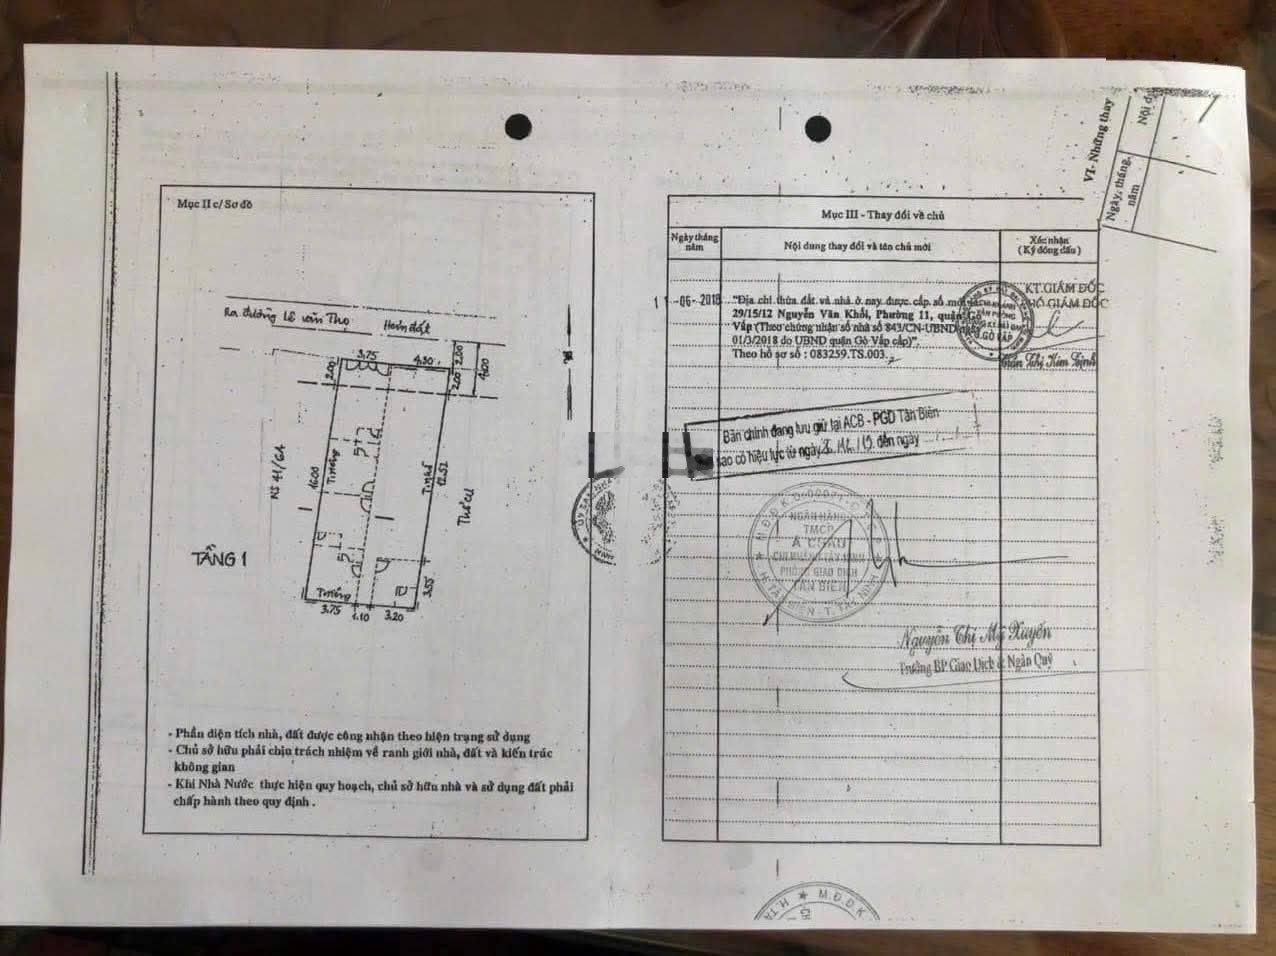 Mục II c/ Sơ đồ
Ra đường Lê Văn Thọ
Hẻm đất
3,75
4,30
2,00
2,00
2,00
4,00
NS 41/6A
16,00
T.riêng
T.nhà
12,52
Thổ cư
TẦNG 1
3,55
T.riêng
3,75
1,10
3,20
- Phần diện tích nhà, đất được công nhận theo hiện trạng sử dụng
- Chủ sở hữu phải chịu trách nhiệm về ranh giới nhà, đất và kiến trúc
không gian
- Khi Nhà Nước thực hiện quy hoạch, chủ sở hữu nhà và sử dụng đất phải
chấp hành theo quy định .
Mục III - Thay đổi về chủ
Ngày tháng
năm
Nội dung thay đổi và tên chủ mới
Xác nhận
( Ký đóng dấu )
11-06-2018
"Địa chỉ thửa đất và nhà ở nay được cấp số mới
29/15/12 Nguyễn Văn Khối, Phường 11, quận Gò
Vấp (Theo chứng nhận số nhà số 843/CN-UBND ngày
01/3/2018 do UBND quận Gò Vấp cấp)".
Theo hồ sơ số : 083259.TS.003.
KT.GIÁM ĐỐC
PHÓ GIÁM ĐỐC
VĂN PHÒNG
Q.GÒ VẤP
Trần Thị Kim Định
Bản chính đang lưu giữ tại ACB - PGD Tân Biên
sao có hiệu lực từ ngày đến ngày
NGÂN HÀNG
TMCP
Á CHÂU
CHI NHÁNH TÂY NINH
PHÒNG GIAO DỊCH
TÂN BIÊN
H.TÂN BIÊN - T.TÂY NINH
Nguyễn Thị Mỹ Xuyến
Trưởng BP. Giao Dịch & Ngân Quỹ
VI- Những thay
Ngày, tháng,
năm
Nội du
M.Đ.Đ.K